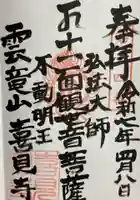 奉拝
令和七年四月八日
弘法大師
十一面観世音菩薩
不動明王
雲竜山
喜見寺